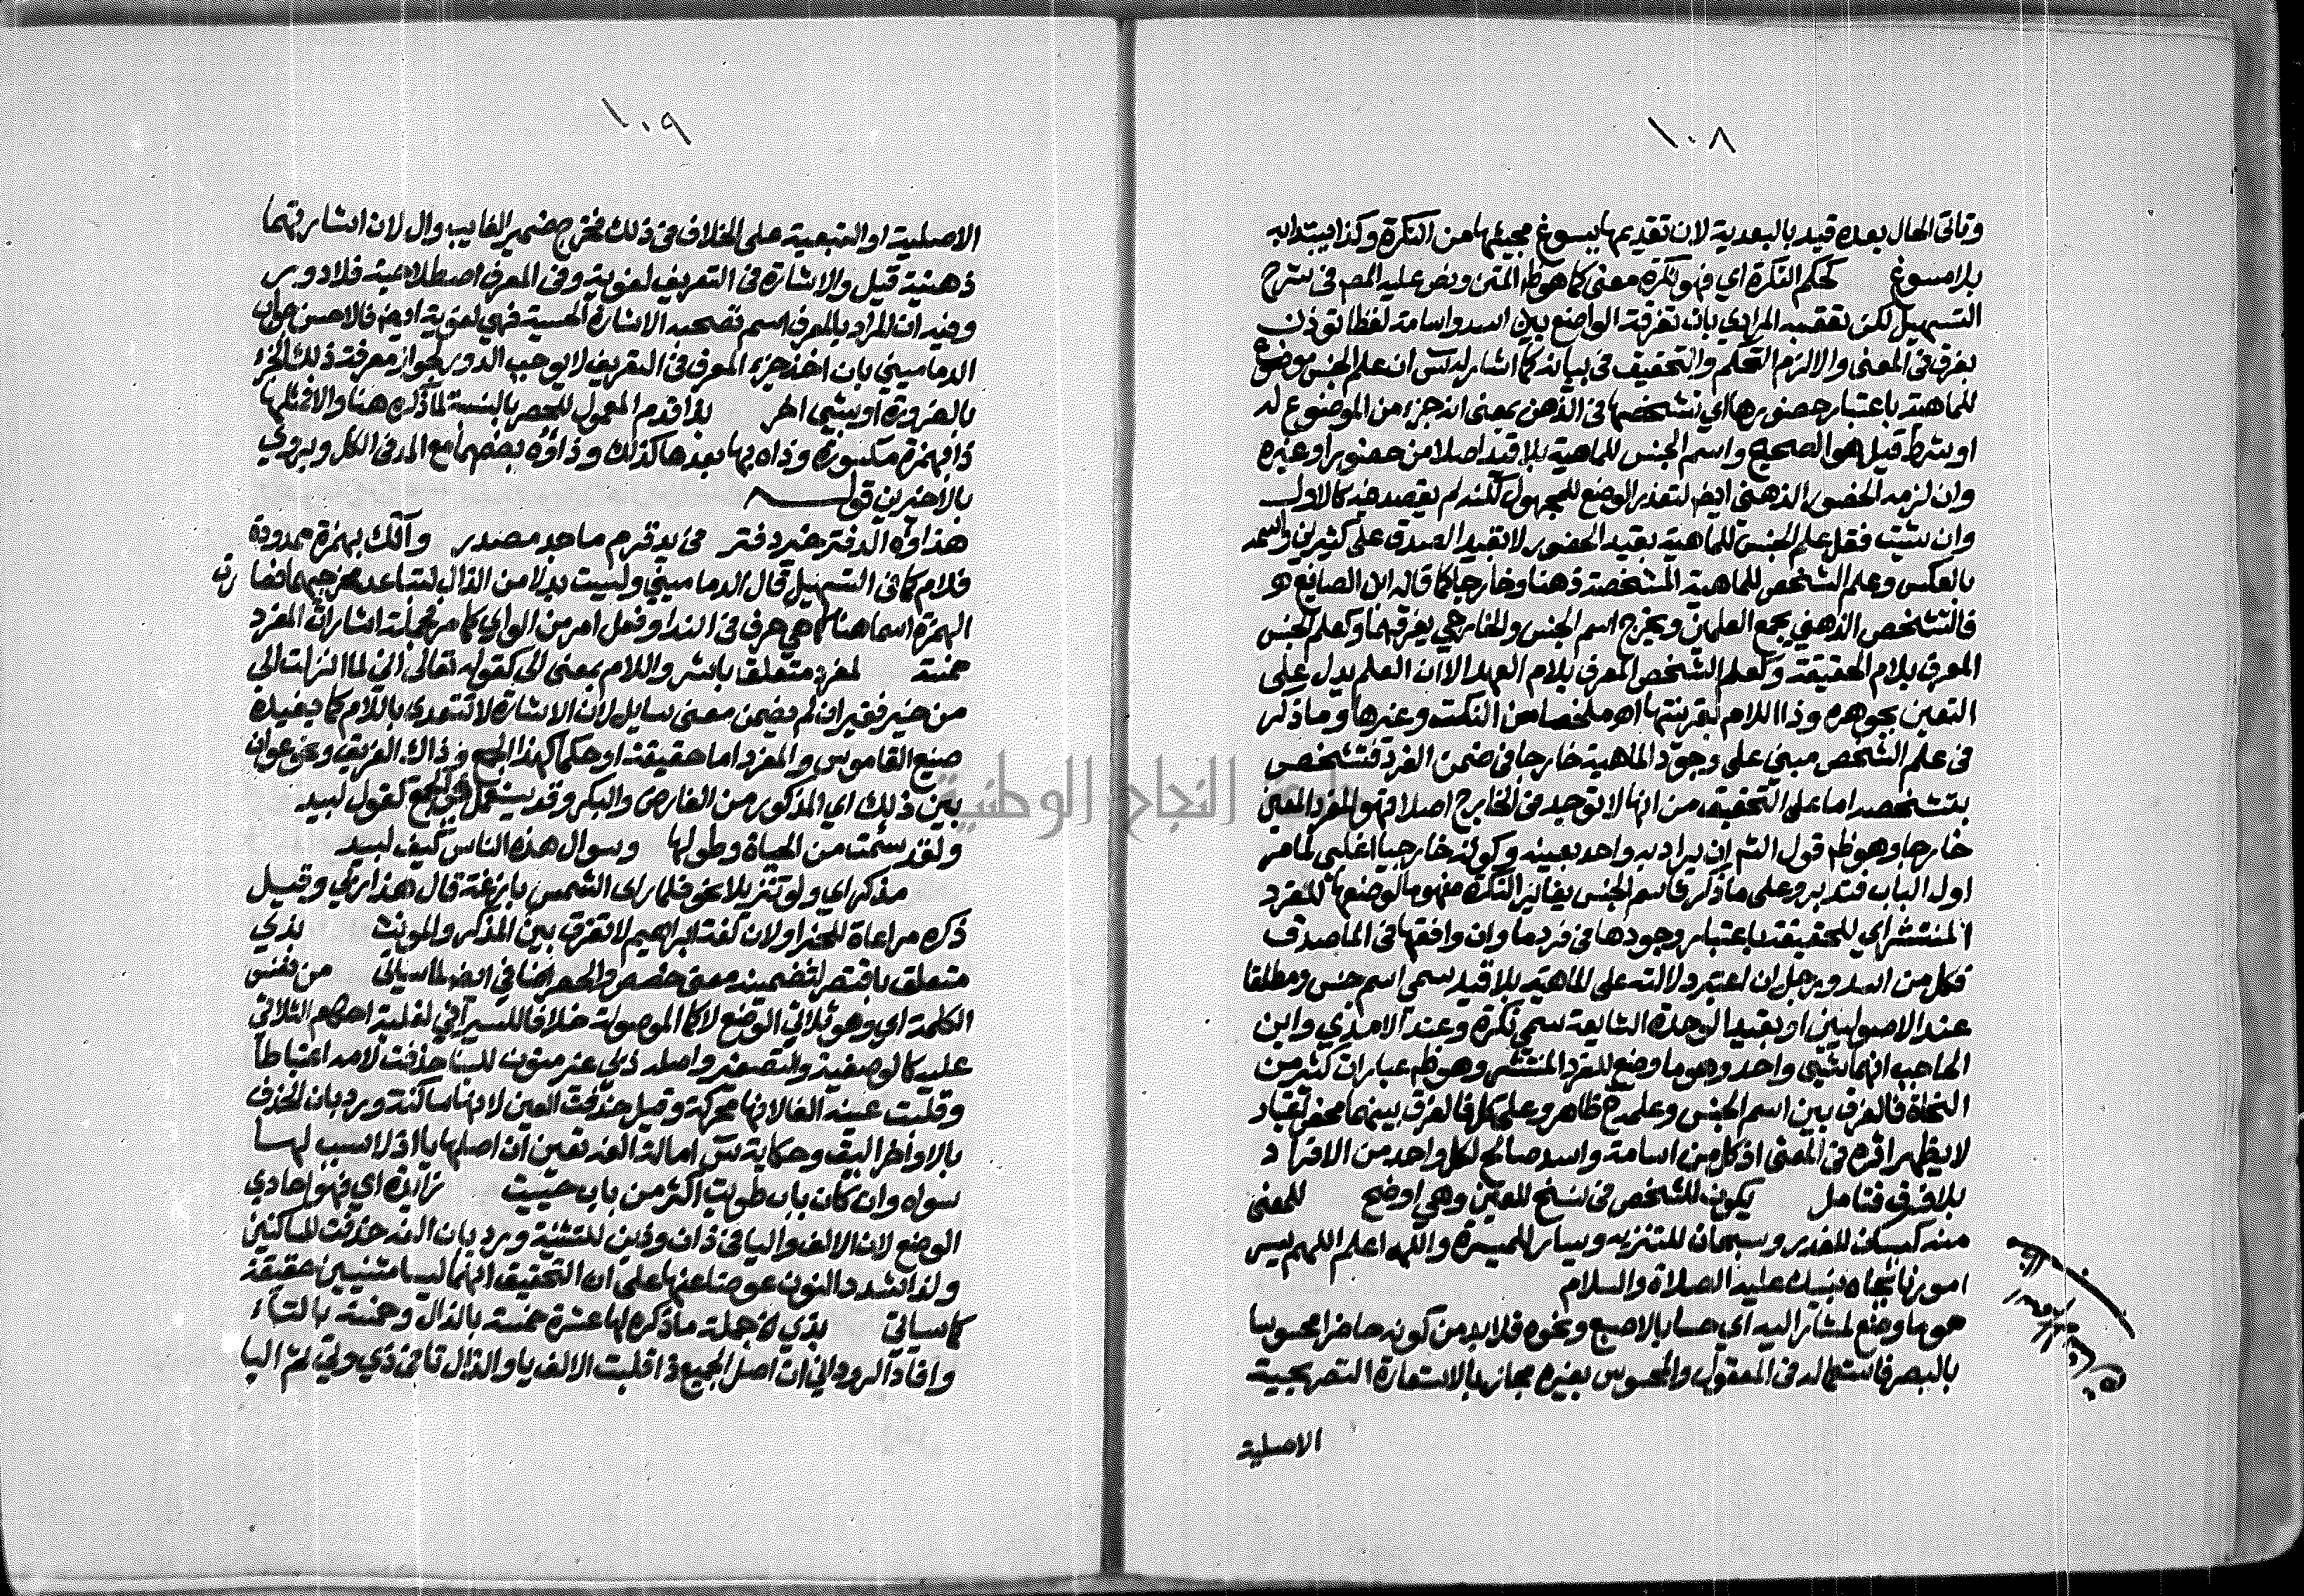 ١٠٨
وتاتي الحال بعده قيد بالبعدية لان تقديمها يسوغ مجيئها من النكرة وكذا يبتدا به
بلا مسوغ كحكم النكرة اي فهو نكرة معنى كما هو ظ المتن ونص عليه المص في شرح
التسهيل لكن تعقبه المرادي بان تفرقة الواضع بين اسد واسامة لفظا توذن
بفرق في المعنى والا لزم التحكم والتحقيق في بيانه كما اشار له س ان علم الجنس موضوع
للماهية باعتبار حضورها اي تشخصها في الذهن بمعنى انه جزء من الموضوع له
او شرط قيل هو الصحيح واسم الجنس للماهية بلا قيد اصلا من حضور او غيره
وان لزمه الحضور الذهني ايض لتعذر الوضع للمجهول لكنه لم يقصد فيه كالاول
وان شيت فقل علم الجنس للماهية بقيد الحضور لا بقيد الصدق على كثيرين واسمه
بالعكس وعلم الشخص للماهية المشخصة ذهنا وخارجا كما قاله ابن الصايغ
فالتشخص الذهني يجمع العلمين ويخرج اسم الجنس والخارجي يفرقهما وكعلم الجنس
المعرف بلام الحقيقة وكعلم الشخص المعرف بلام العهد الا ان العلم يدل على
التعين بجوهره وذا اللام بقرينتها اه ملخصا من النكت وغيرها وما ذكر
في علم الشخص مبني على وجود الماهية خارجا في ضمن الفرد فتشخص
بتشخصه اما على التحقيق من انها لا توجد في الخارج اصلا فهو للفرد المعين
خارجا وهو ظ قول الش ان يراد به واحد بعينه وكونه خارجيا اغلبي لما مر
اول الباب فتدبر وعلى ما ذكر فاسم الجنس يغاير النكرة مفهوما لوضعها للفرد
المنتشر اي للحقيقة باعتبار وجودها في فرد ما وان وافقها في الماصدق
فكل من اسد ورجل ان اعتبر دلالته على الماهية بلا قيد سمي اسم جنس ومطلقا
عند الاصوليين او بقيد الوحدة الشايعة سمي نكرة وعند الامدي وابن
الحاجب انهما شي واحد وهو ما وضع للفرد المنتشر وهو ظ عبارات كثير من
النحاة فالفرق بين اسم الجنس وعلمه ح ظاهر وعلى كل فالفرق بينهما محض اعتبار
لا يظهر اثره في المعنى اذ كل من اسامة واسد صالح لكل واحد من الافراد
بلا فرق فتامل يكون للشخص في نسخ للعين وهي اوضح للمعنى
منه كيسان للغدر وسبحان للتنزيه ويسار للميسرة والله اعلم اللهم يسر
امورنا بجاه نبيك عليه الصلاة والسلام
هو ما وضع لمشار اليه اي حسا بالاصبع ونحوه فلابد من كونه حاضرا محسوسا
بالبصر فاستعماله في المعقول والمحسوس بغيره مجاز بالاستعارة التصريحية
الاصلية
١٠٩
الاصلية او التبعية على الخلاف في ذلك فخرج ضمير الغايب وال لان اشارتهما
ذهنية قيل والاشارة في التعريف لغوية وفي المعرف اصطلاحية فلا دور
وفيه ان المراد بالمعرف اسم تصحبه الاشارة الحسية فهي لغوية ايض فالاحسن جواب
الدماميني بان اخذ جزء المعرف في التعريف لا يوجب الدور لجواز معرفة ذلك الجزء
بالضرورة او بشي اخر بذا قدم المعمول للحصر بالنسبة لما ذكره هنا والا فمثلها
ذا فهمزة مكسورة وذاه بها بعدها كذلك وذاؤه بضمهما مع المد في الكل ويروي
بالاخيرين قوله
هذاؤه الدفتر خير دفتر في يد قرم ماجد مصدر وآلك بهمزة ممدودة
فلام كما في التسهيل قال الدماميني وليست بدلا من الذال لتباعد مخرجيهما
الهمزة اسما هنا كما هي حرف في الندا وفعل امر من الواي كما مر فجملة اشارات المفرد
خمسة لمفرد متعلق باشر واللام بمعنى الى كقوله تعالى اني لما انزلت الي
من خير فقير ان لم يضمن معنى سايل لان الاشارة لا تتعدى باللام كما يفيده
صنيع القاموس والمفرد اما حقيقة او حكما كهذا الجمع وذاك الفريق ونحو عوان
بين ذلك اي المذكور من الفارض والبكر وقد يستعمل في الجمع كقول لبيد
ولقد سئمت من الحياة وطولها وسوال هذه الناس كيف لبيد
مذكر اي ولو تنزيلا نحو فلما راى الشمس بازغة قال هذا ربي وقيل
ذكره مراعاة للخبر او لان لغة ابراهيم لا تفرق بين المذكر والمونث بذي
متعلق باقتصر لتضمينه معنى خص والحصر اضافي ايض لما سياتي من نفس
الكلمة اي وهو ثلاثي الوضع لا كما الموصولة خلافا للسيرافي لغلبة احكام الثلاثي
عليه كالوصفية والتصغير واصله ذيي غير منون للبنا حذفت لامه اعتباطا
وقلبت عينه الفا لانها محركة وقيل حذفت العين لانها ساكنة ورد بان الحذف
بالاواخر اليق وحكاية س امالة الفه تعين ان اصلها يا اذ لا سبب لها
سواه وان كان باب طويت اكثر من باب حييت زايدة اي فهو احادي
الوضع لان الالف واليا في ذان وذين للتثنية ورد بان الفه حذفت للساكنين
ولذا شدد النون عوضا عنها على ان التحقيق انهما ليسا مثنيين حقيقة
كما سياتي بذي لاخ جملة ما ذكره لها عشرة خمسة بالذال وخمسة بالتاء
وافاد الروداني ان اصل الجميع ذا قلبت الالف يا والذال تا في ذي وتي ثم اليا
جامعة النجاح الوطنية